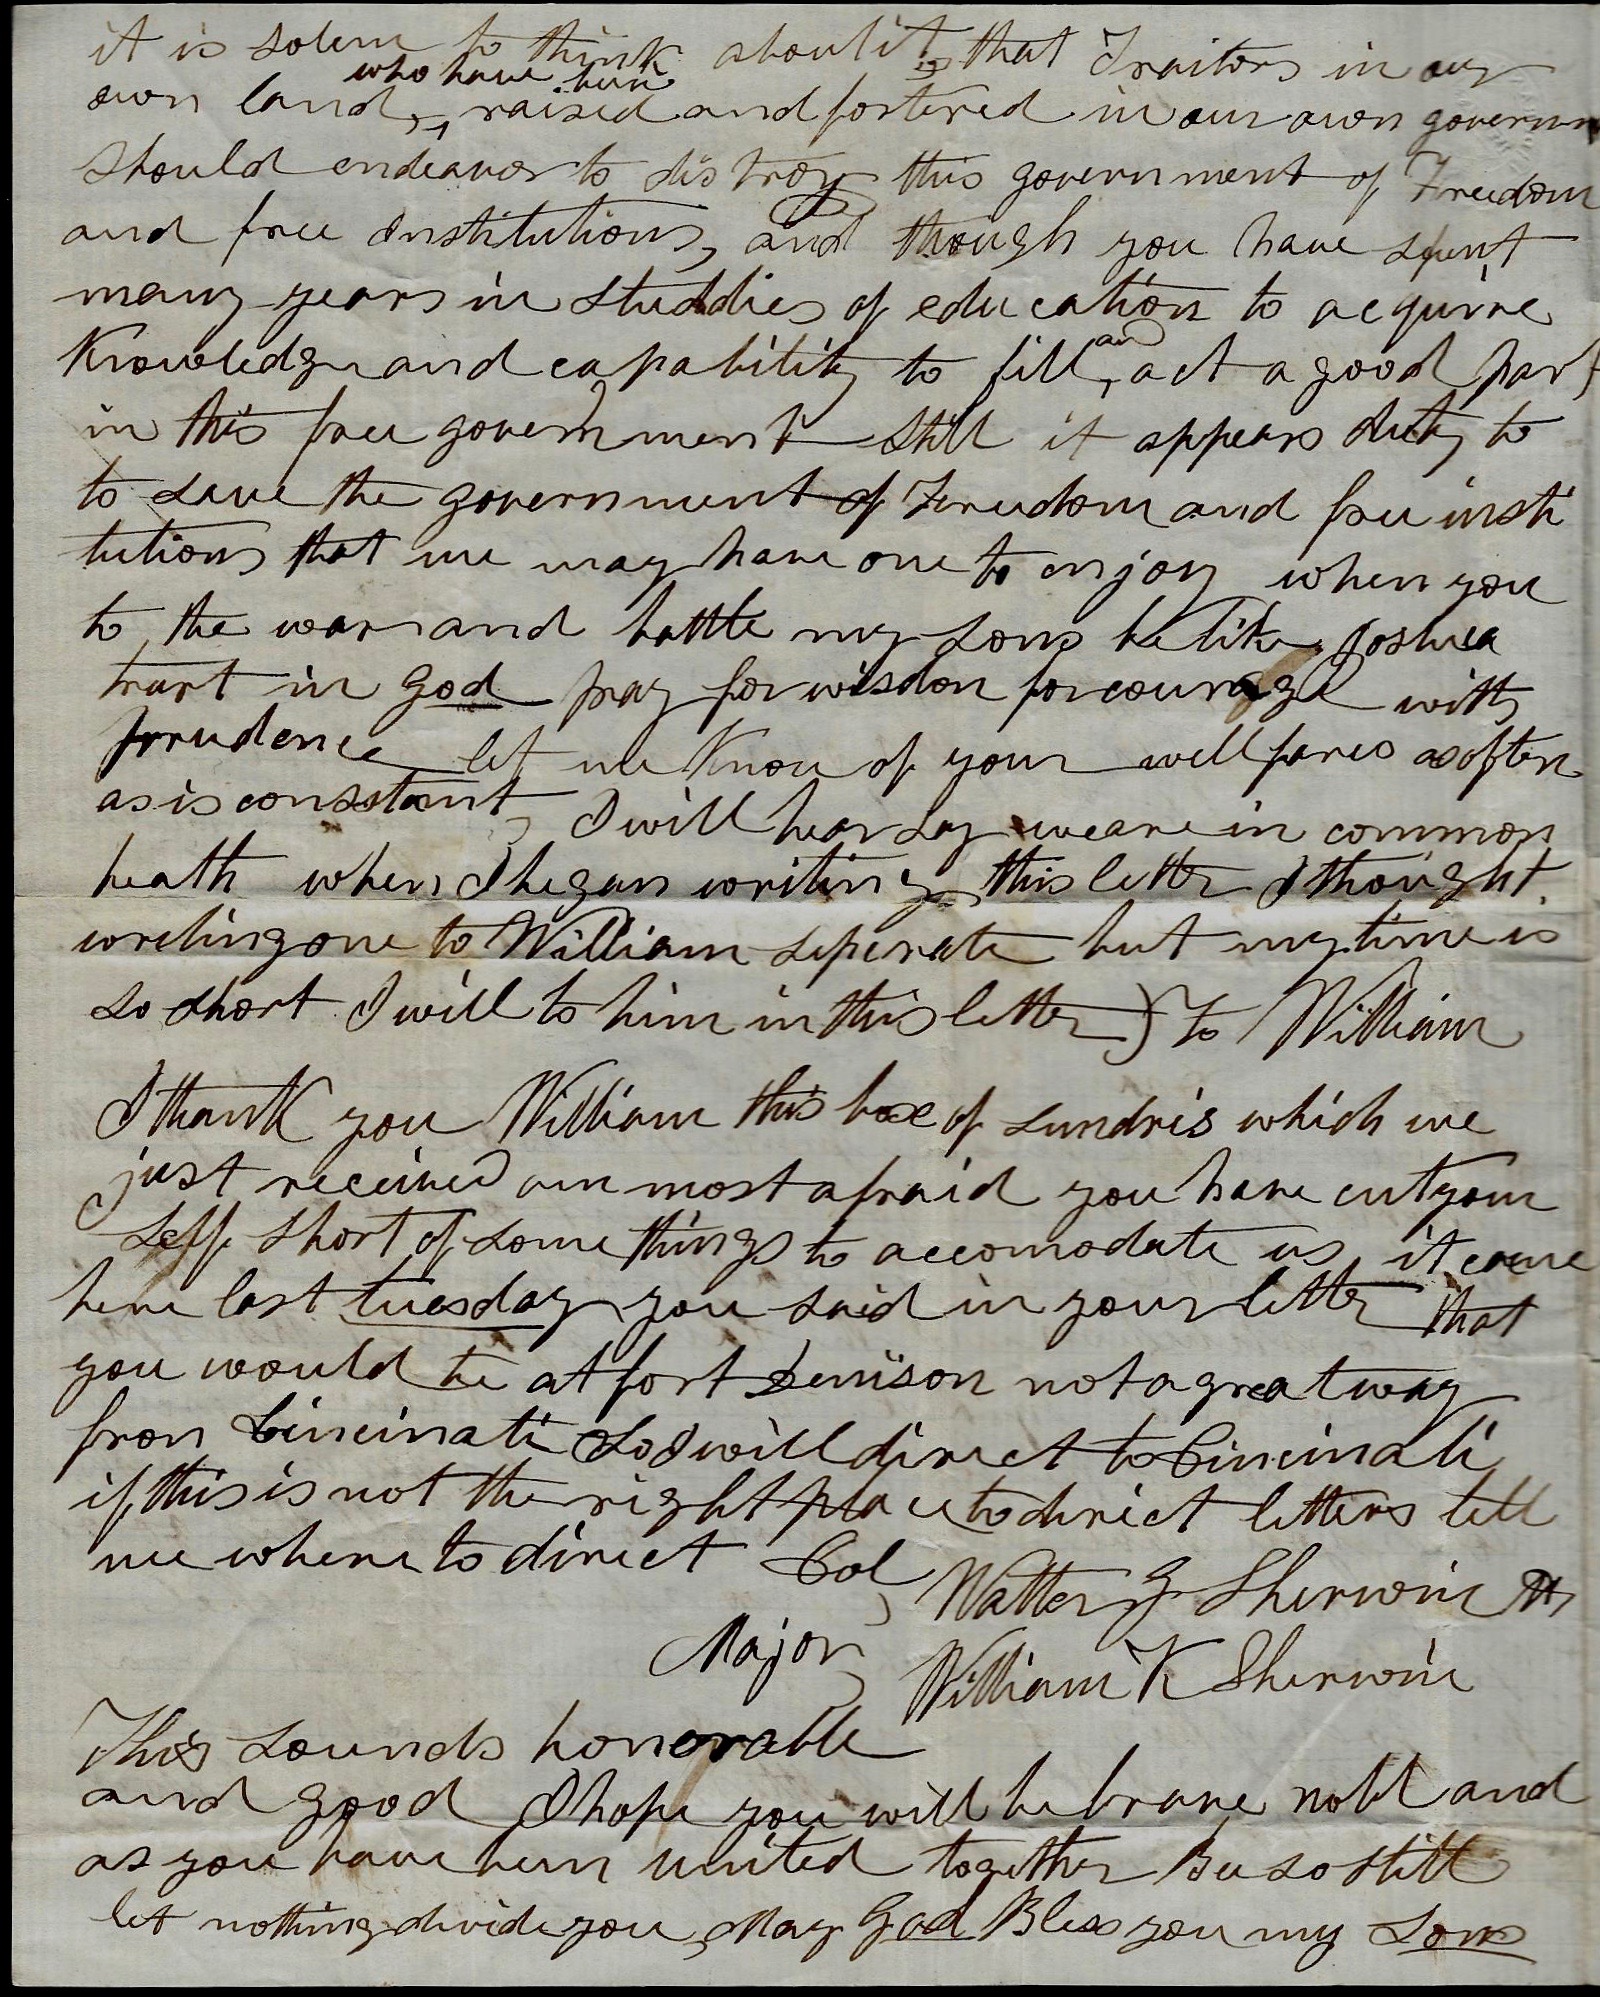 it is solem to think about it, that Traitors in our
who have been
own land, raised and fostered in our own governm
should endeavor to distroy this government of Freedom
and free institutions, and though you have spent
many years in studdies of education to acquire
Knowledge and capability to fill and act a good part
in this free government still it appears duty to
to save the government of Freedom and free insti
tutions that we may have one to enjoy when you
to the war and battle my sons be like Joshua
trust in God pray for wisdon for courage with
prudence let me know of your wellfares as often
as is consstant, I will hear say we are in common
heath when I began writing this letter I thought
writing one to William seperate but my time is
so short I will to him in this letter) to William
I thank you William this box of sundris which we
just received am most afraid you have cut your
self short of some things to accomodate us, it came
here last tuesday you said in your letter that
you would be at fort Denison not a great way
fron Cincinati So I will direct to Cincinati
if this is not the right place to dirict letters tell
me where to direct Col, Walter G Sherwin
Major, William K Sherwin
This sounds honorable
and good I hope you will be brave nobl and
as you have been united together Be so still
let nothing divide you, May God Bless you my sons